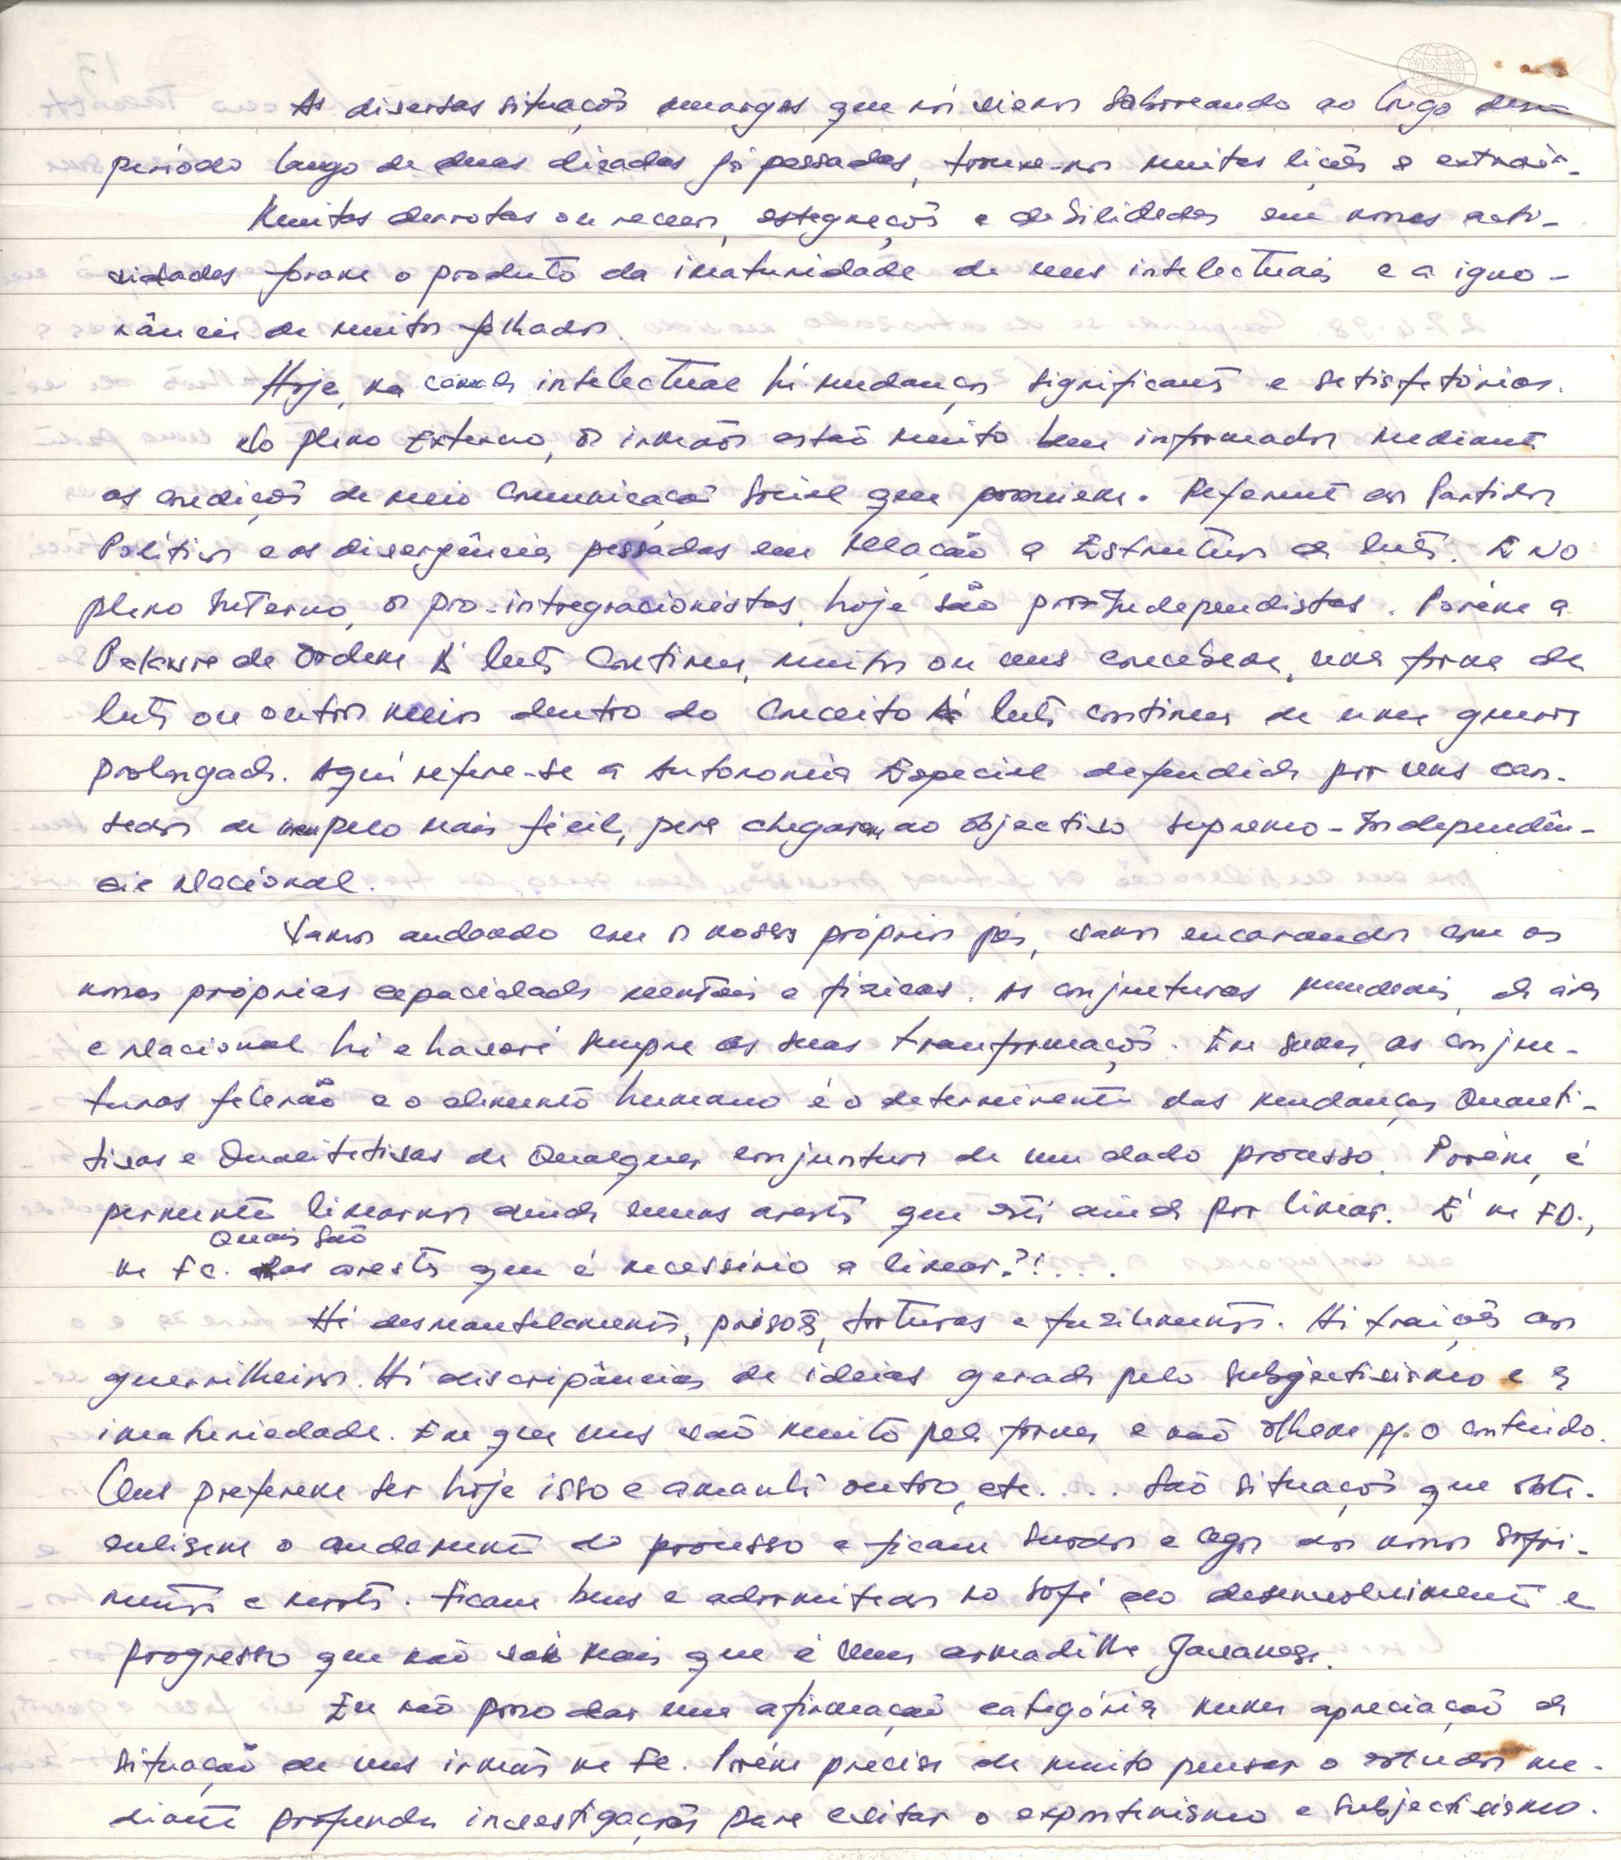 As diversas situações amargas que nós viemos saboreando ao longo deste
período longo de duas décadas já passadas, trouxe-nos muitas lições a extrair.
Muitas derrotas ou recuos, estagnações e debilidades em nossas acti-
vidades foram o produto da imaturidade de uns intelectuais e a igno-
rância de muitos falhados.
Hoje, na camada intelectual há mudanças significante e satisfatórias.
No plano Externo, os irmãos estão muito bem informados mediante
as condições de meio Comunicação Social que possuem. Referente aos Partidos
Políticos e as divergências passadas em relação a Estrutura da luta. E No
plano Interno, os pro-integracionistas, hoje são pro-Independistas. Porém a
Palavra de Ordem A luta Continua, muitos ou uns concebem, uma forma de
luta ou outros meios dentro do Conceito A luta continua de uma guerra
prolongada. Aqui refere-se a Autonomia Especial defendida por uns can-
sados de pelo mais fácil, para chegarem ao objectivo supremo - Independên-
cia Nacional.
Vamos andando com os nossos próprios pés, vamos encarando com as
nossas próprias capacidades mentais e físicas. As conjunturas mundiais, da área
e Nacional há e haverá sempre as suas transformações. Em suma, as conjun-
turas falarão e o elemento humano é o determinante das mudanças Quanti-
tivas e Qualitativas de Qualquer conjuntura de um dado processo. Porém, é
permanente limarmos ainda umas arestas que está ainda por limar. É na FD.,
Quais são
na FC. as arestas que é necessário a limar?!....
Há desmantelamentos, prisões, torturas e fuzilamentos. Há traições aos
guerrilheiros. Há discripâncias de ideias gerada pelo subjectivismo e a
imaturiedade. Em que uns vão muito pela forma e não olham p/. o conteúdo.
Uns preferem ser hoje isso e amanhã outro, etc.... São situações que obsta-
culizam o andamento do processo e ficam surdos e cegos aos nossos sofri-
mentos e mortes. Ficam bens e adormitados no sofá do desenvolvimento e
progresso que não vai mais que é uma armadilha Javanesa.
Eu não posso dar uma afirmação categória numa apreciação da
situação de uns irmãos na Fe. Porém precisa de muito pensar o estudar me-
diante profunda investigações para evitar o espontanismo e subjectivismo.